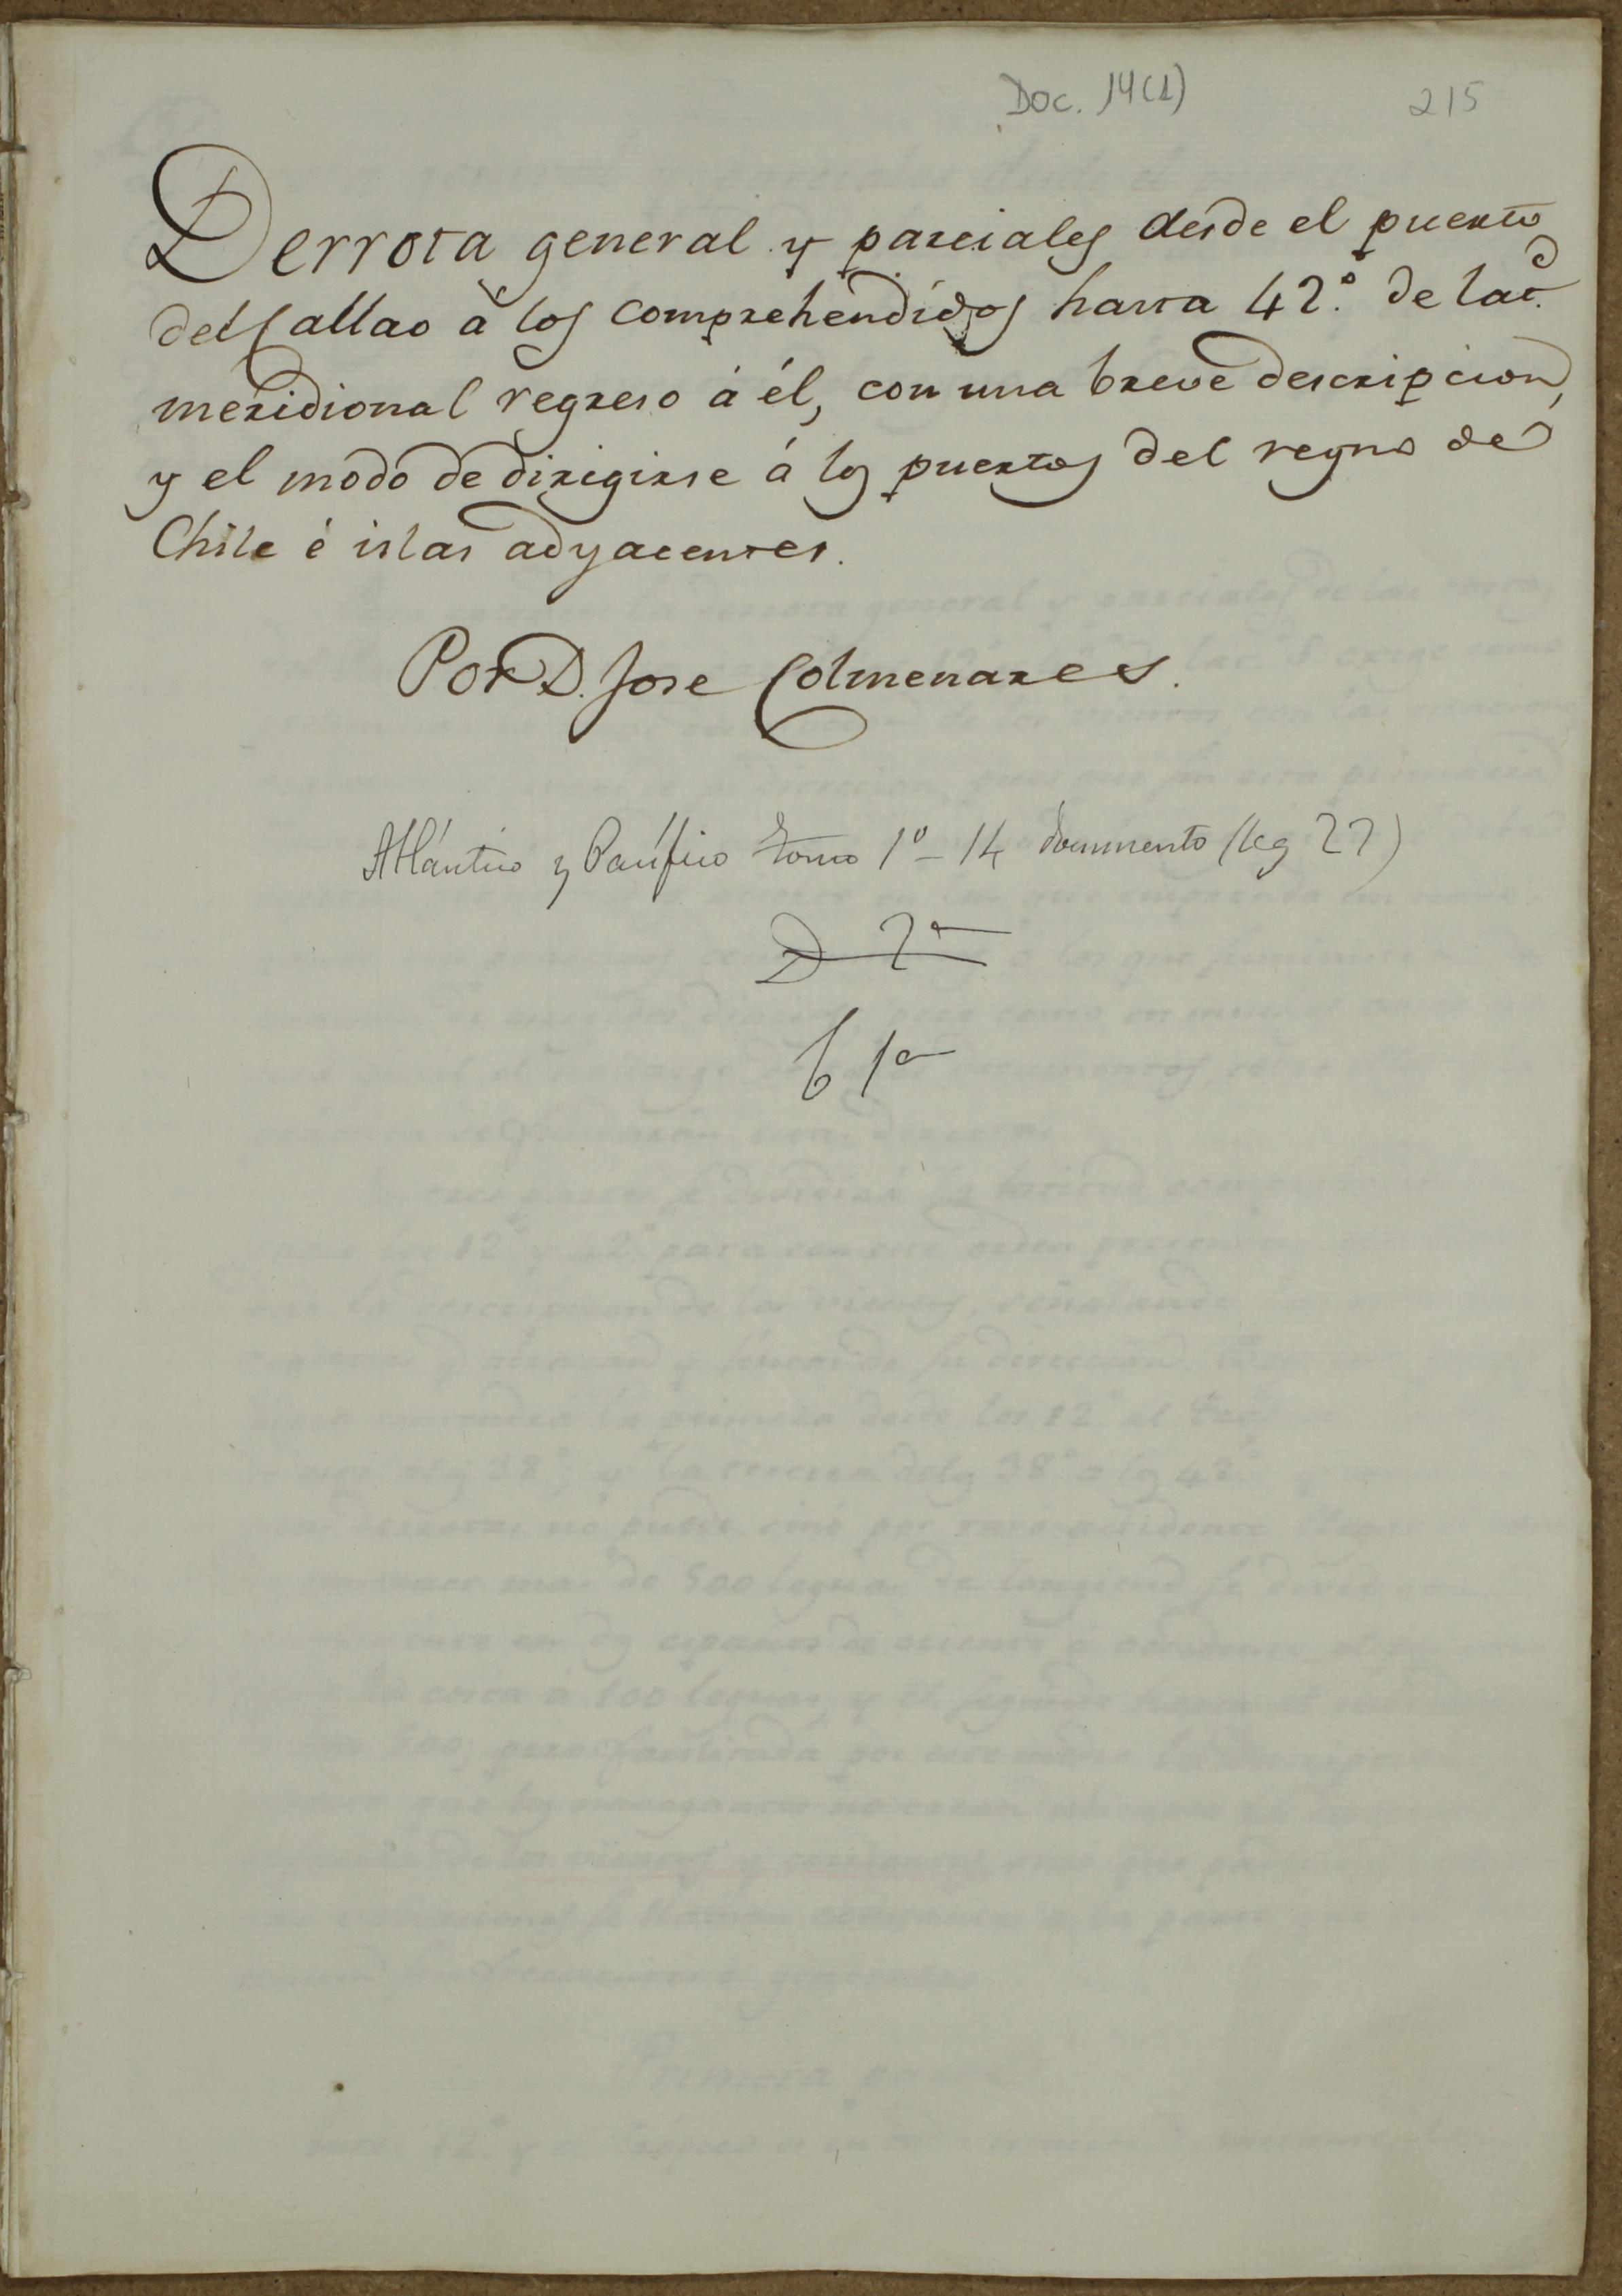 Doc. 14(1) 215
Derrota general y parciales desde el puerto
del Callao à los comprehendidos hasta 42.° de lat.d
meridional regreso á él, con una breve descripcion,
y el modo de dirigirse á los puertos del reyno de
Chile é islas adyacentes.
Por D. Jose Colmenares.
Atlántico y Pacífico tomo 1º - 14 documento (leg 22)
D 2a
6 1a